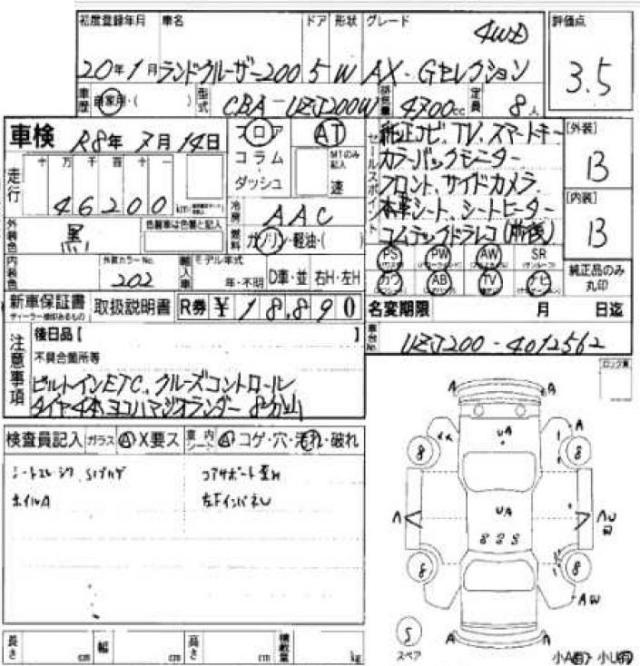 初度登録年月 車名 ドア 形状 グレード 評価点
4WD
20年1月 ランドクルーザー200 5 W AX・Gセレクション 3.5
車歴 自家用・( ) 型式 CBA-UZJ200W 排気量 4700cc 定員 8人
車検 R8年7月14日 フロア AT
コラム MTのみ記入
ダッシュ 速
走行 十 万 千 百 十 一
46200 km
冷房 AAC
外装色 黒 色替車は色番と記入 燃料 ガソリン・軽油・( )
内装色 外装カラーNo. 202 輸入車 モデル年式 年・不明 D車・並 右H・左H
セールスポイント 純正ナビ、TV、スマートキー
カラーバックモニター
フロント、サイドカメラ
本革シート、シートヒーター
コムテックドラレコ(前後)
[外装]
B
[内装]
B
PS PW AW SR
カワ AB TV ナビ
純正品のみ丸印
新車保証書 取扱説明書 R券 ¥18,890
名変期限 月 日迄
車台No. UZJ200-4012562
注意事項 後日品[
不具合箇所等
ビルトインETC、クルーズコントロール
タイヤ4本ヨコハマジオランダー 8分山
検査員記入 ガラス A X要ス 車内シート A コゲ・穴・汚れ・破れ
ホイルA
ロック置
A A
A
UA
8 8
A UA A
8 8
AW
A A
5
スペア
小A 小U
長さ cm 幅 cm 高さ cm 積載量 kg